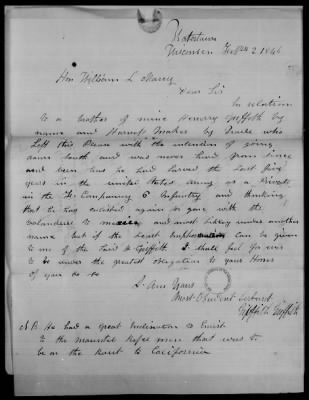 Watertown
Wisconsin Feb 2 1846
Hon William L. Marcy
Dear Sir
In relation
to a brother of mine Griffith by
name and Harness Maker by Trade who
Left this Place with the intention of going
down South and was never heard from since
and been has he had served the Last five
years in the united States army as a Private
in the Company E Infantry and thinking
that he has enlisted again or gone with the
volunteers to mexico and most likely under another
name but if the Least can be given
to me of the Said Griffith I shall feel for ever
to the greatest obligation to your Honor
if you do so
I am yours
most obedient Servant
Griffith Griffith
N B He had a great inclination to Enlist
to the mounted Rifle men that was to
be on the Rout to California